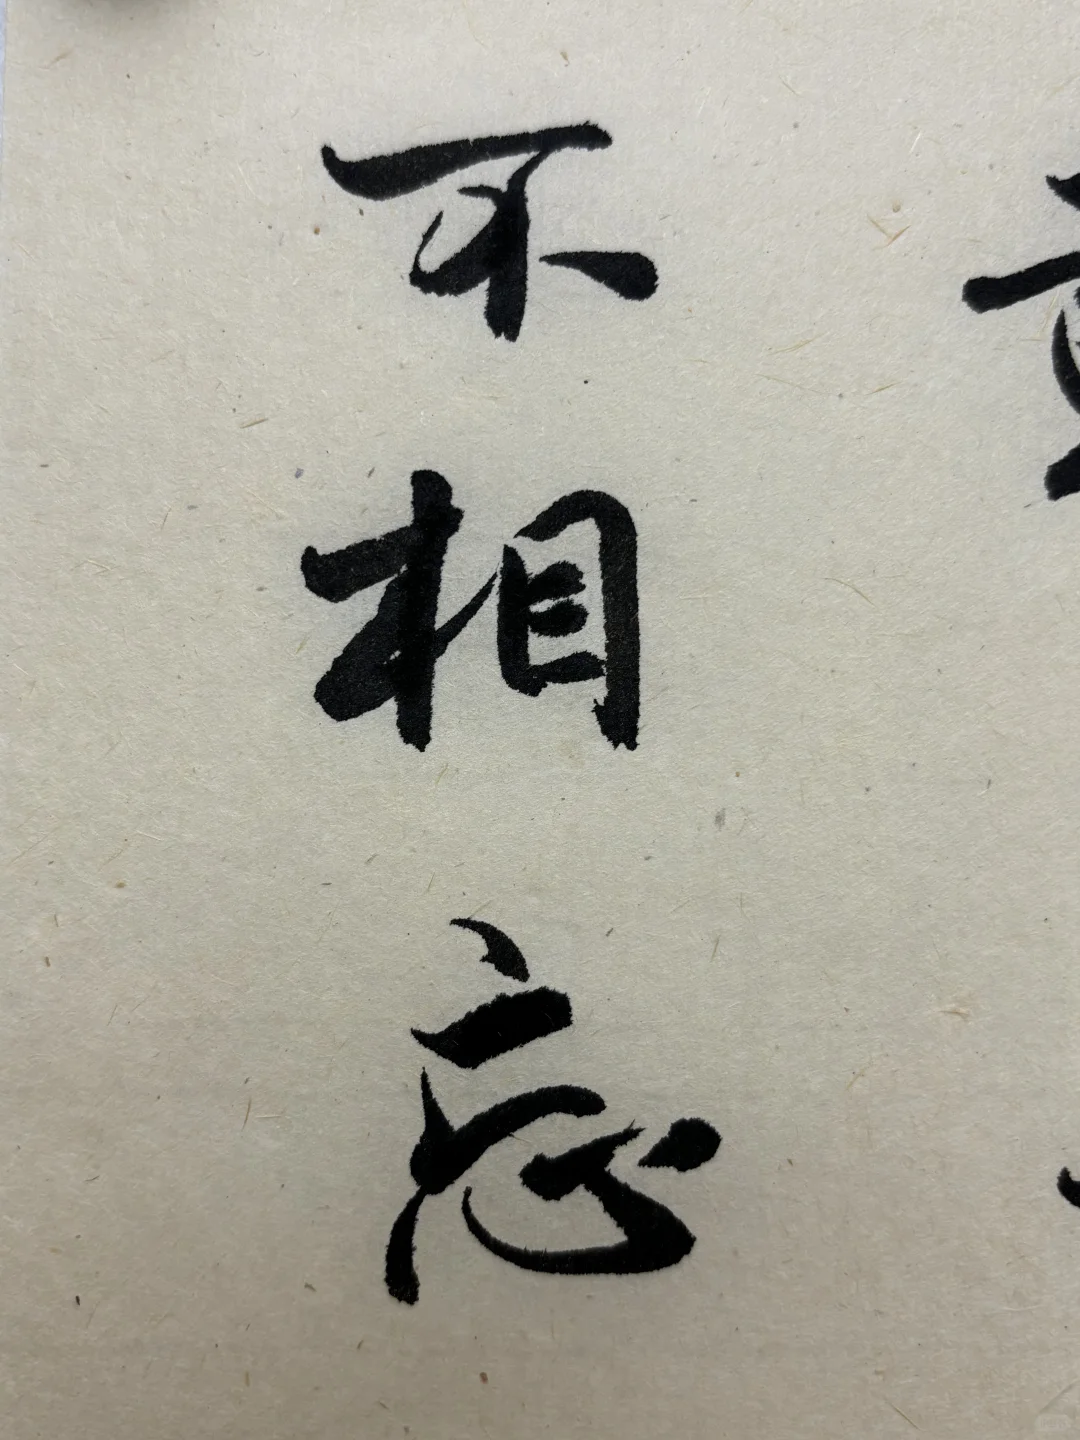 不相忘